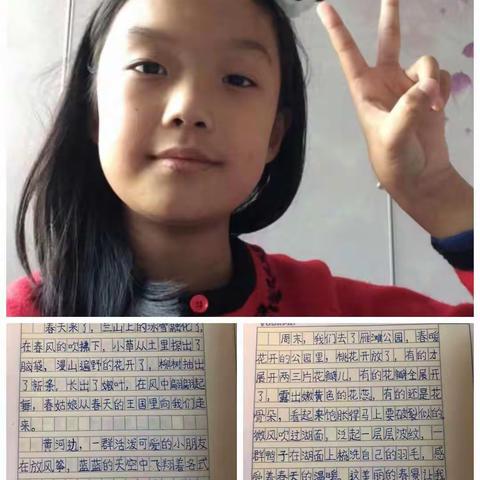 春天来了，兰山上的冰雪融化了，
在春风的吹拂下，小草从土里探出了
脑袋，漫山遍野的花开了，柳树抽出
了新条，长出了嫩叶，在风中翩翩起
舞，春姑娘从春天的王国里向我们走
来。
黄河边，一群活泼可爱的小朋友
在放风筝，蓝蓝的天空中飞翔着各式
周末，我们去了雁滩公园，春暖
花开的公园里，桃花开放了，有的才
展开两三片花瓣儿，有的花瓣全展开
了，露出嫩黄色的花蕊，有的还是花
骨朵，看起来饱胀得马上要破裂似的
微风吹过湖面，泛起一层层波纹，一
群鸭子在湖面上梳洗自己的羽毛，感
受着春天的温暖，这美丽的春景让我